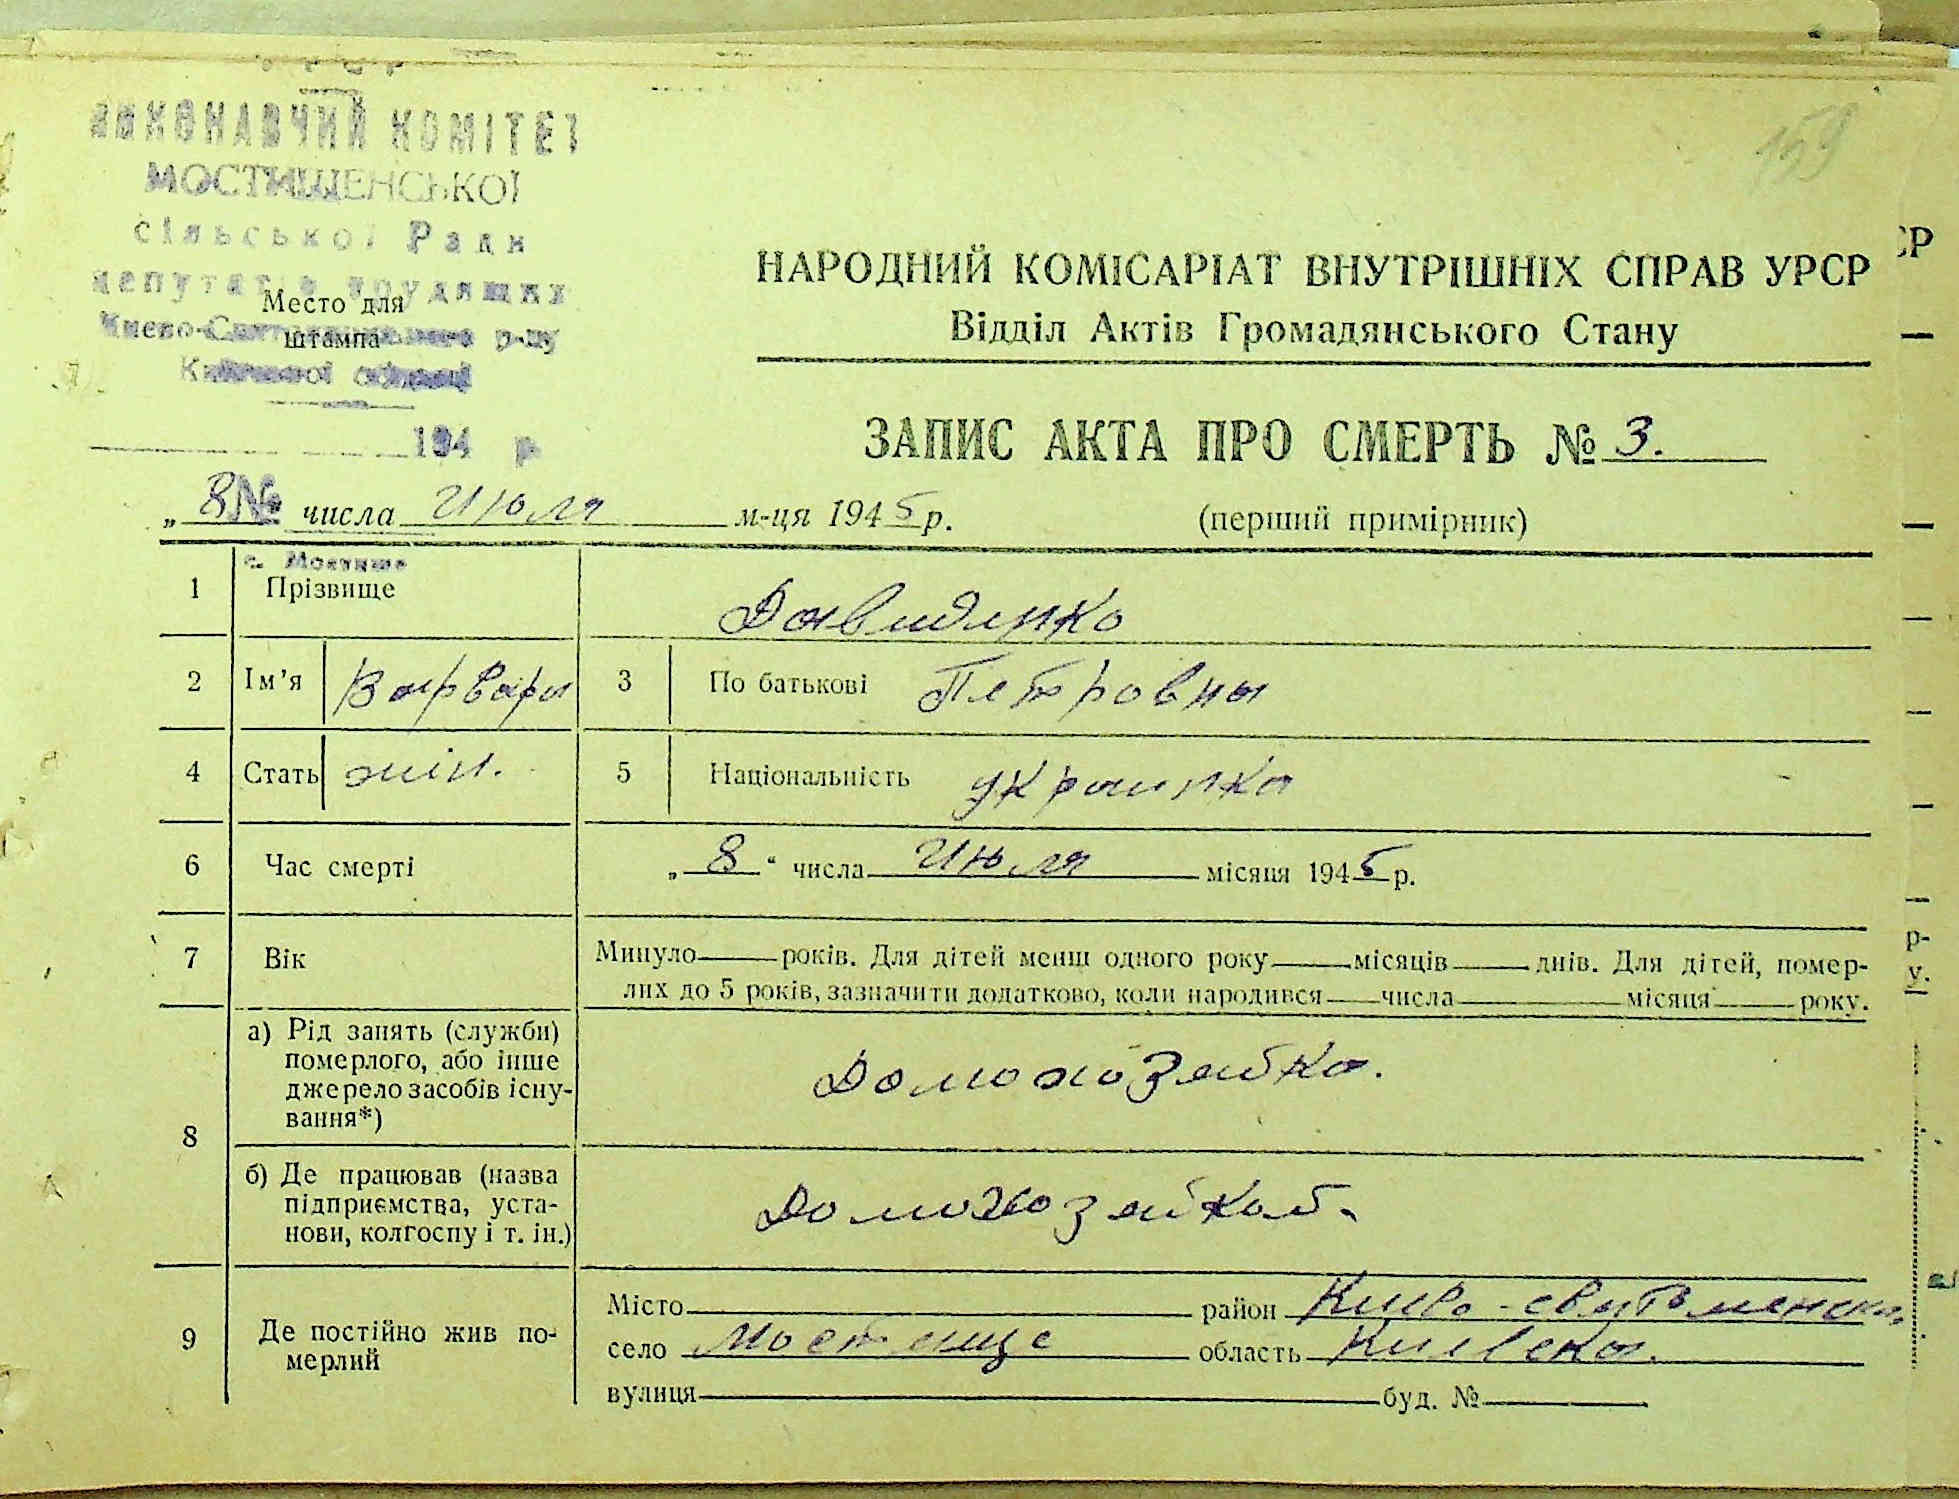 УРСР
ВИКОНАВЧИЙ КОМІТЕТ
МОСТИЩЕНСЬКОЇ
сільської Ради
депутатів трудящих
Києво-Святошинського р-ну
Київської області
Место для
штампа
194 р.
№
с. Мостище
159
НАРОДНИЙ КОМІСАРІАТ ВНУТРІШНІХ СПРАВ УРСР
Відділ Актів Громадянського Стану
ЗАПИС АКТА ПРО СМЕРТЬ № 3.
„ 8 числа Июля м-ця 1945 р.
(перший примірник)
1 Прізвище Давиденко
2 Ім’я Варвара 3 По батькові Петровна
4 Стать жін. 5 Національність украинка
6 Час смерті „ 8 “ числа Июля місяця 1945 р.
7 Вік Минуло років. Для дітей менш одного року місяців днів. Для дітей, помер-
лих до 5 років, зазначити додатково, коли народився числа місяця року.
8 а) Рід занять (служби)
померлого, або інше
джерело засобів існу-
вання*)
Домохозяйка.
б) Де працював (назва
підприємства, уста-
нови, колгоспу і т. ін.)
Домохозяйкой.
9 Де постійно жив по-
мерлий
Місто район
село Мостище область Киевская
вулиця буд. №
СР
р-
у.